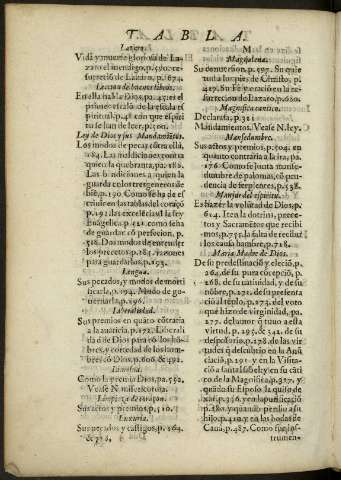 T A B L A.
Lazaro.
Vida y muerte gloriosa de Lazaro el mendigo, p.590. resurreciō de Lazaro, p.674.
Leccion de buenos libros.
En ella habla Dios, pa.45. es el
primer escalō de la escala es
piritual, p.48. con que espiritu
se han de leer, p.
Ley de Dios y sus Mandamientos.
Los modos de pecar cōtra ella,
184. Las maldiciones contra
quien la quebranta, pa.186.
Las bendiciones a quien la
guarda con tres generos de
biē, p.190. Como se ha de es
criuir en las tablas del coraçō
p.191. las excelēcias d la ley
Euāgelica, p.421. como se ha
de guardar cō perfeccion, p.
518. Dos modos de entender
los precetos, p.184. razones
para guardarlos, p.193.
Lengua.
Sus pecados, y modos de morti
ficarla, p.194. Modo de go
uernarla, p.196.
Liberalidad.
Sus premios en quāto cōtraria
a la auaricia, p.172. Liberali
dad de Dios para cō los hō-
bres, y cortedad de los hom-
bres cō Dios, p.608. & 912.
Limosna.
Como la premia Dios, pa.550.
Vease N. misericordia.
Limpieza de coraçon.
Sus actos y premios, p.510.
Luxuria.
Sus pecados y castigos, p.164.
M
Magdalena.
Su conuersion, p.597. Su que
Christo, p.
457. Su Fe y oracion en la re
surreccion de Lazaro, p.680.
Magnificat cantico.
Declarase, p.321
Mandamientos. Vease N. ley.
Mansedumbre.
Sus actos y premios, p.504. en
quanto contraria a la ira, pa.
176. Como se junta manse-
dumbre de palomas, cō pru-
dencia de serpientes, p.538.
Manjar del espiritu.
Es hazer la volūtad de Dios, p.
614. Item la dotrina, precep-
tos y Sacramētos que recibi
mos, p.755. la falta de recibir
los causa hambre, p.718.
Maria Madre de Dios.
De su predestinaciō y eleciō, p.
264. de su pura concepciō, p
268. de su natiuidad, y de su
nōbre, p.271. de su presenta-
ciō al tēplo, p.273. del voto
que hizo de virginidad, pa.
277. del amor q̄ tuuo a esta
virtud, p.295. & 342. de su
desposorio, p.278. de las vir
tudes q̄ descubrio en la Anū
ciaciō, p.291. y en la Visita-
ciō a santa Isabel, y en su cāti
co de la Magnifica, p.317. y
quādo su Esposo la quiso de
xar, p.356. y en la purificaciō
p.380. y quando perdio a su
hijo, p.410. y en las bodas de
Cana, p.487. Como fue ins-
trumen-